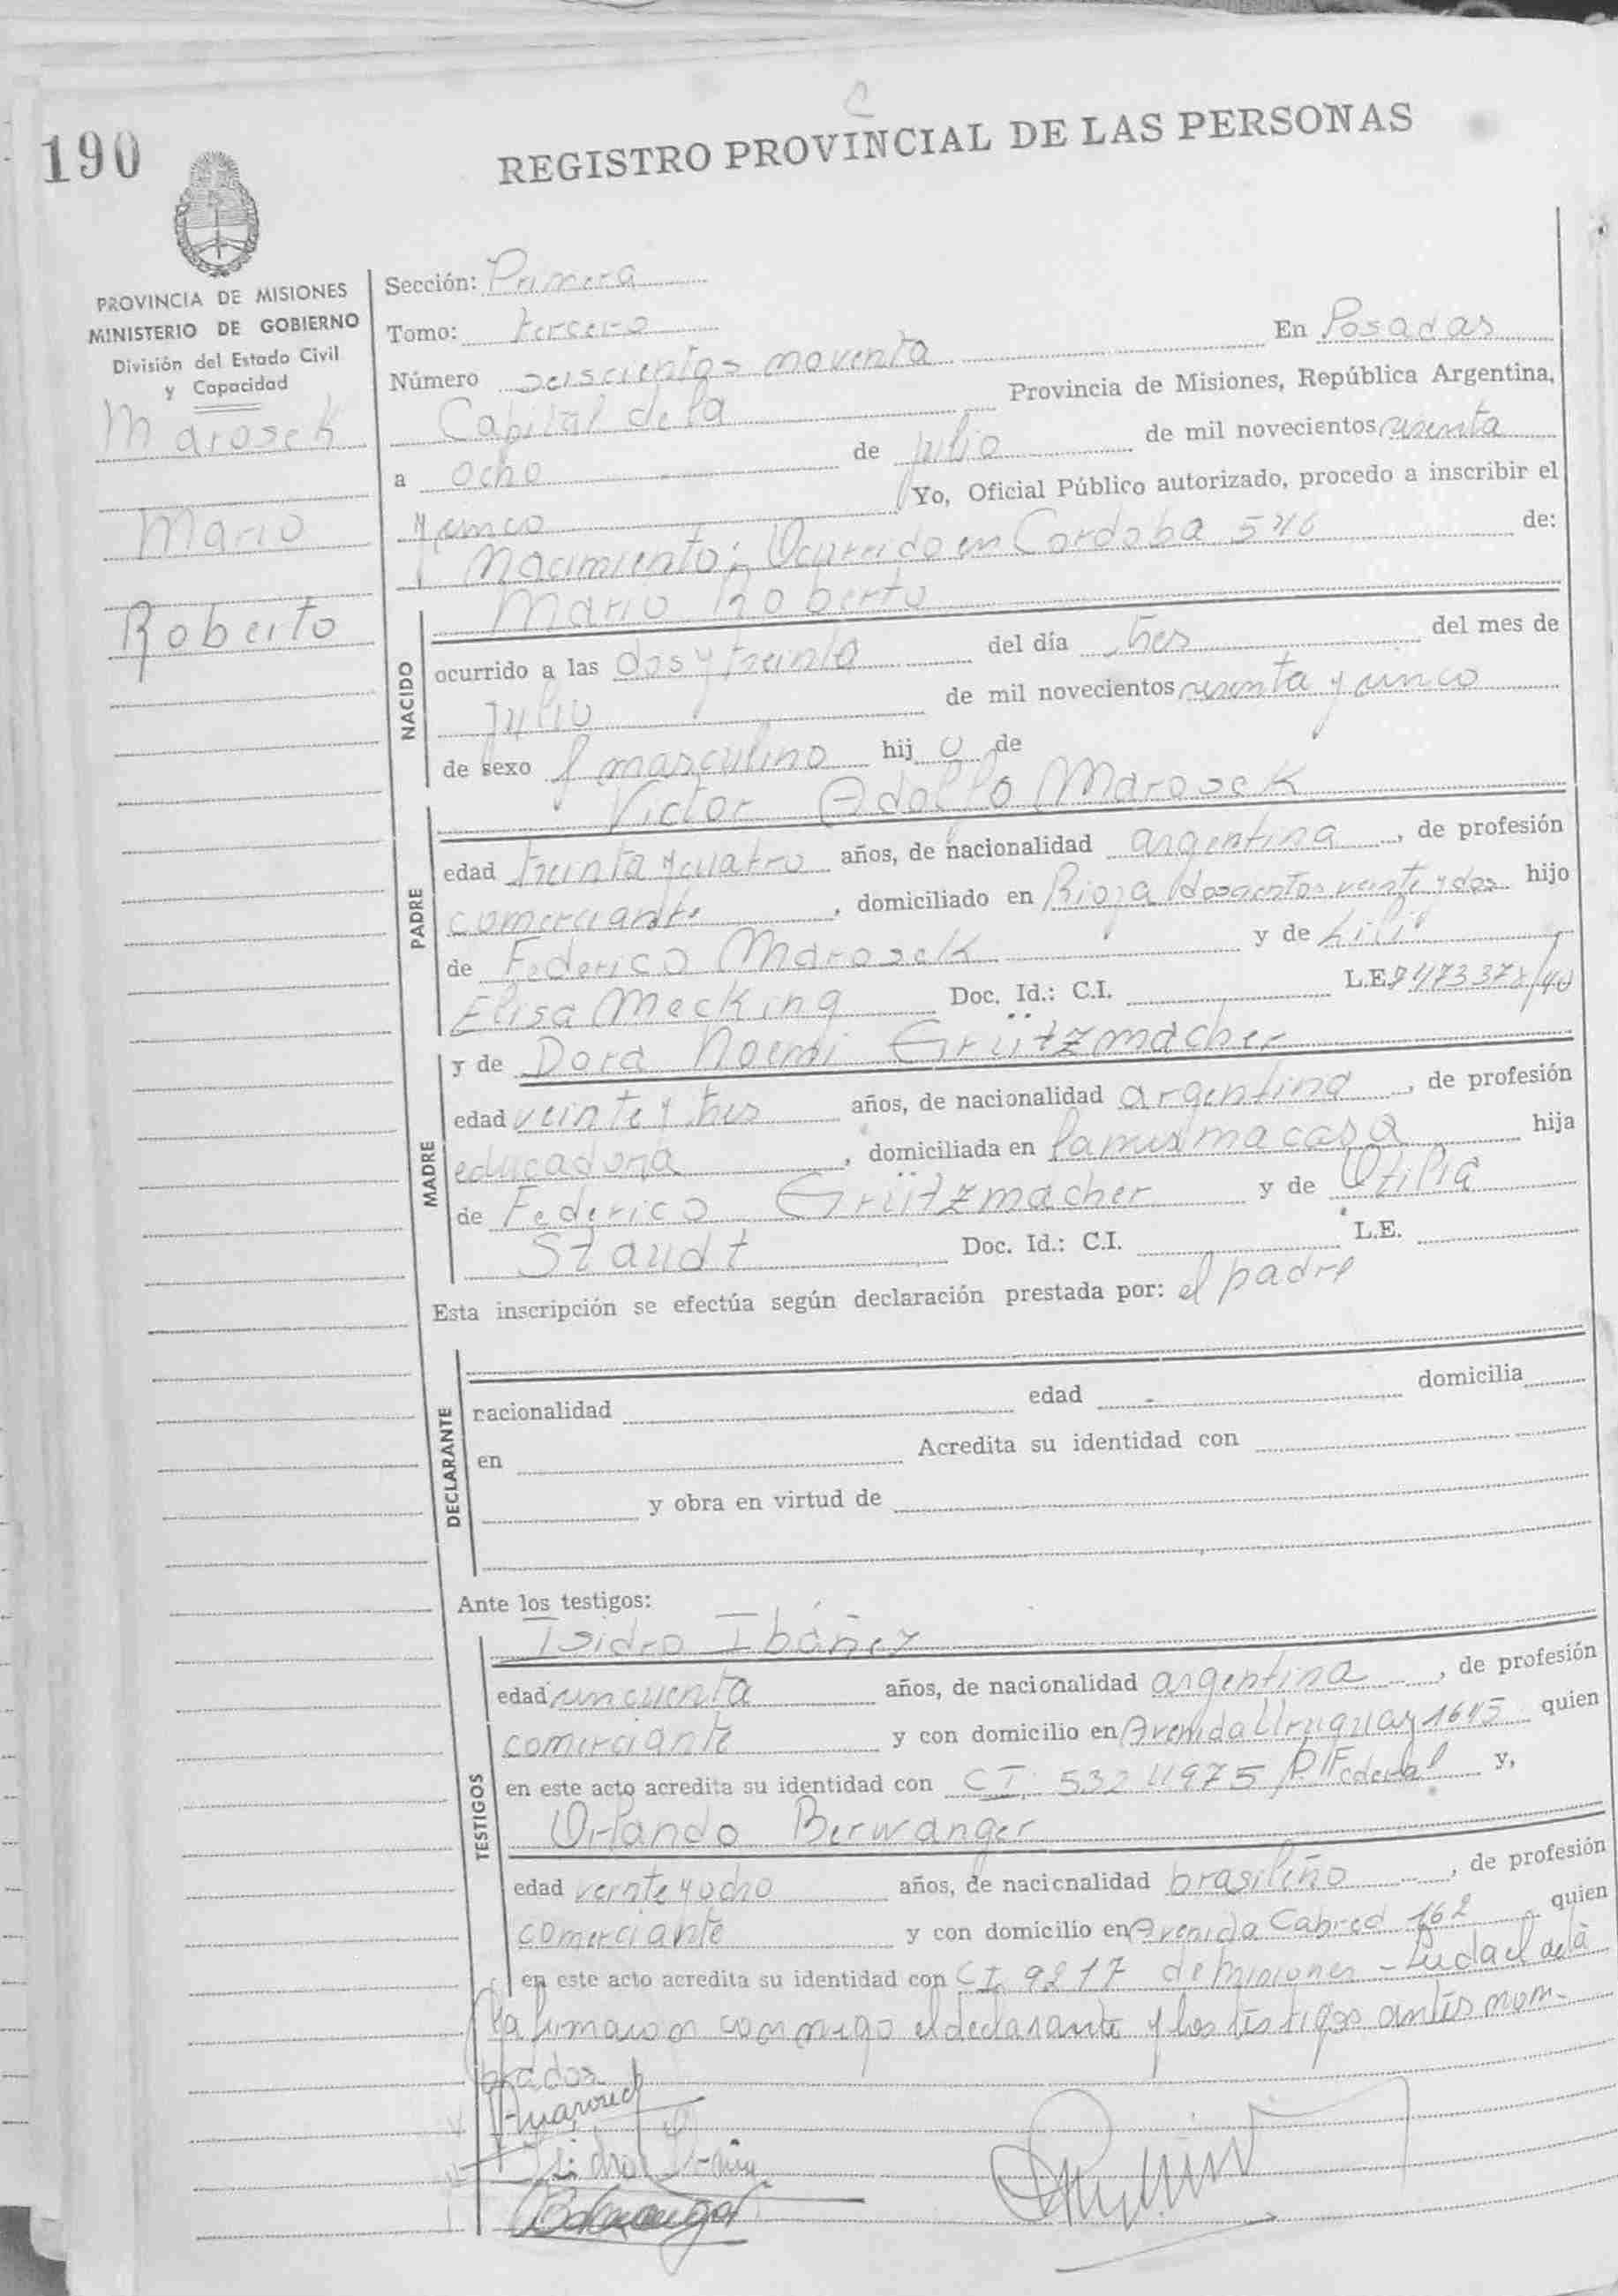 C
190
REGISTRO PROVINCIAL DE LAS PERSONAS
PROVINCIA DE MISIONES
MINISTERIO DE GOBIERNO
División del Estado Civil
y Capacidad
Marosek
Mario
Roberto
Sección: Primera
Tomo: tercero
Número seiscientos noventa En Posadas
Capital de la Provincia de Misiones, República Argentina,
a ocho de julio de mil novecientos sesenta
y cinco Yo, Oficial Público autorizado, procedo a inscribir el
Nacimiento: Ocurrido en Cordoba 546 de:
NACIDO
Mario Roberto
ocurrido a las dos y treinta del día tres del mes de
Julio de mil novecientos sesenta y cinco
de sexo masculino hijo de
PADRE
Victor Adolfo Marosek
edad treinta y cuatro años, de nacionalidad argentina, de profesión
comerciante, domiciliado en Rioja doscientos veinte y dos hijo
de Federico Marosek y de Lili
Elisa Mecking Doc. Id.: C.I. L.E. 7473378/40
MADRE
y de Dora Noemi Grützmacher
edad veinte y tres años, de nacionalidad argentina, de profesión
educadora, domiciliada en la misma casa hija
de Federico Grützmacher y de Otilia
Staudt Doc. Id.: C.I. L.E.
Esta inscripción se efectúa según declaración prestada por: el padre
DECLARANTE
nacionalidad edad domicilia
en Acredita su identidad con
y obra en virtud de
Ante los testigos:
TESTIGOS
Isidro Ibáñez
edad cincuenta años, de nacionalidad argentina, de profesión
comerciante y con domicilio en Avenida Uruguay 1645 quien
en este acto acredita su identidad con CI. 5324975 P. Federal y,
Orlando Berwanger
edad veinte y ocho años, de nacionalidad brasileño, de profesión
comerciante y con domicilio en Avenida Cabred 162 quien
en este acto acredita su identidad con CI 9217 de Misiones - Leida el acta
la firmaron conmigo el declarante y los testigos antes nom-
brados